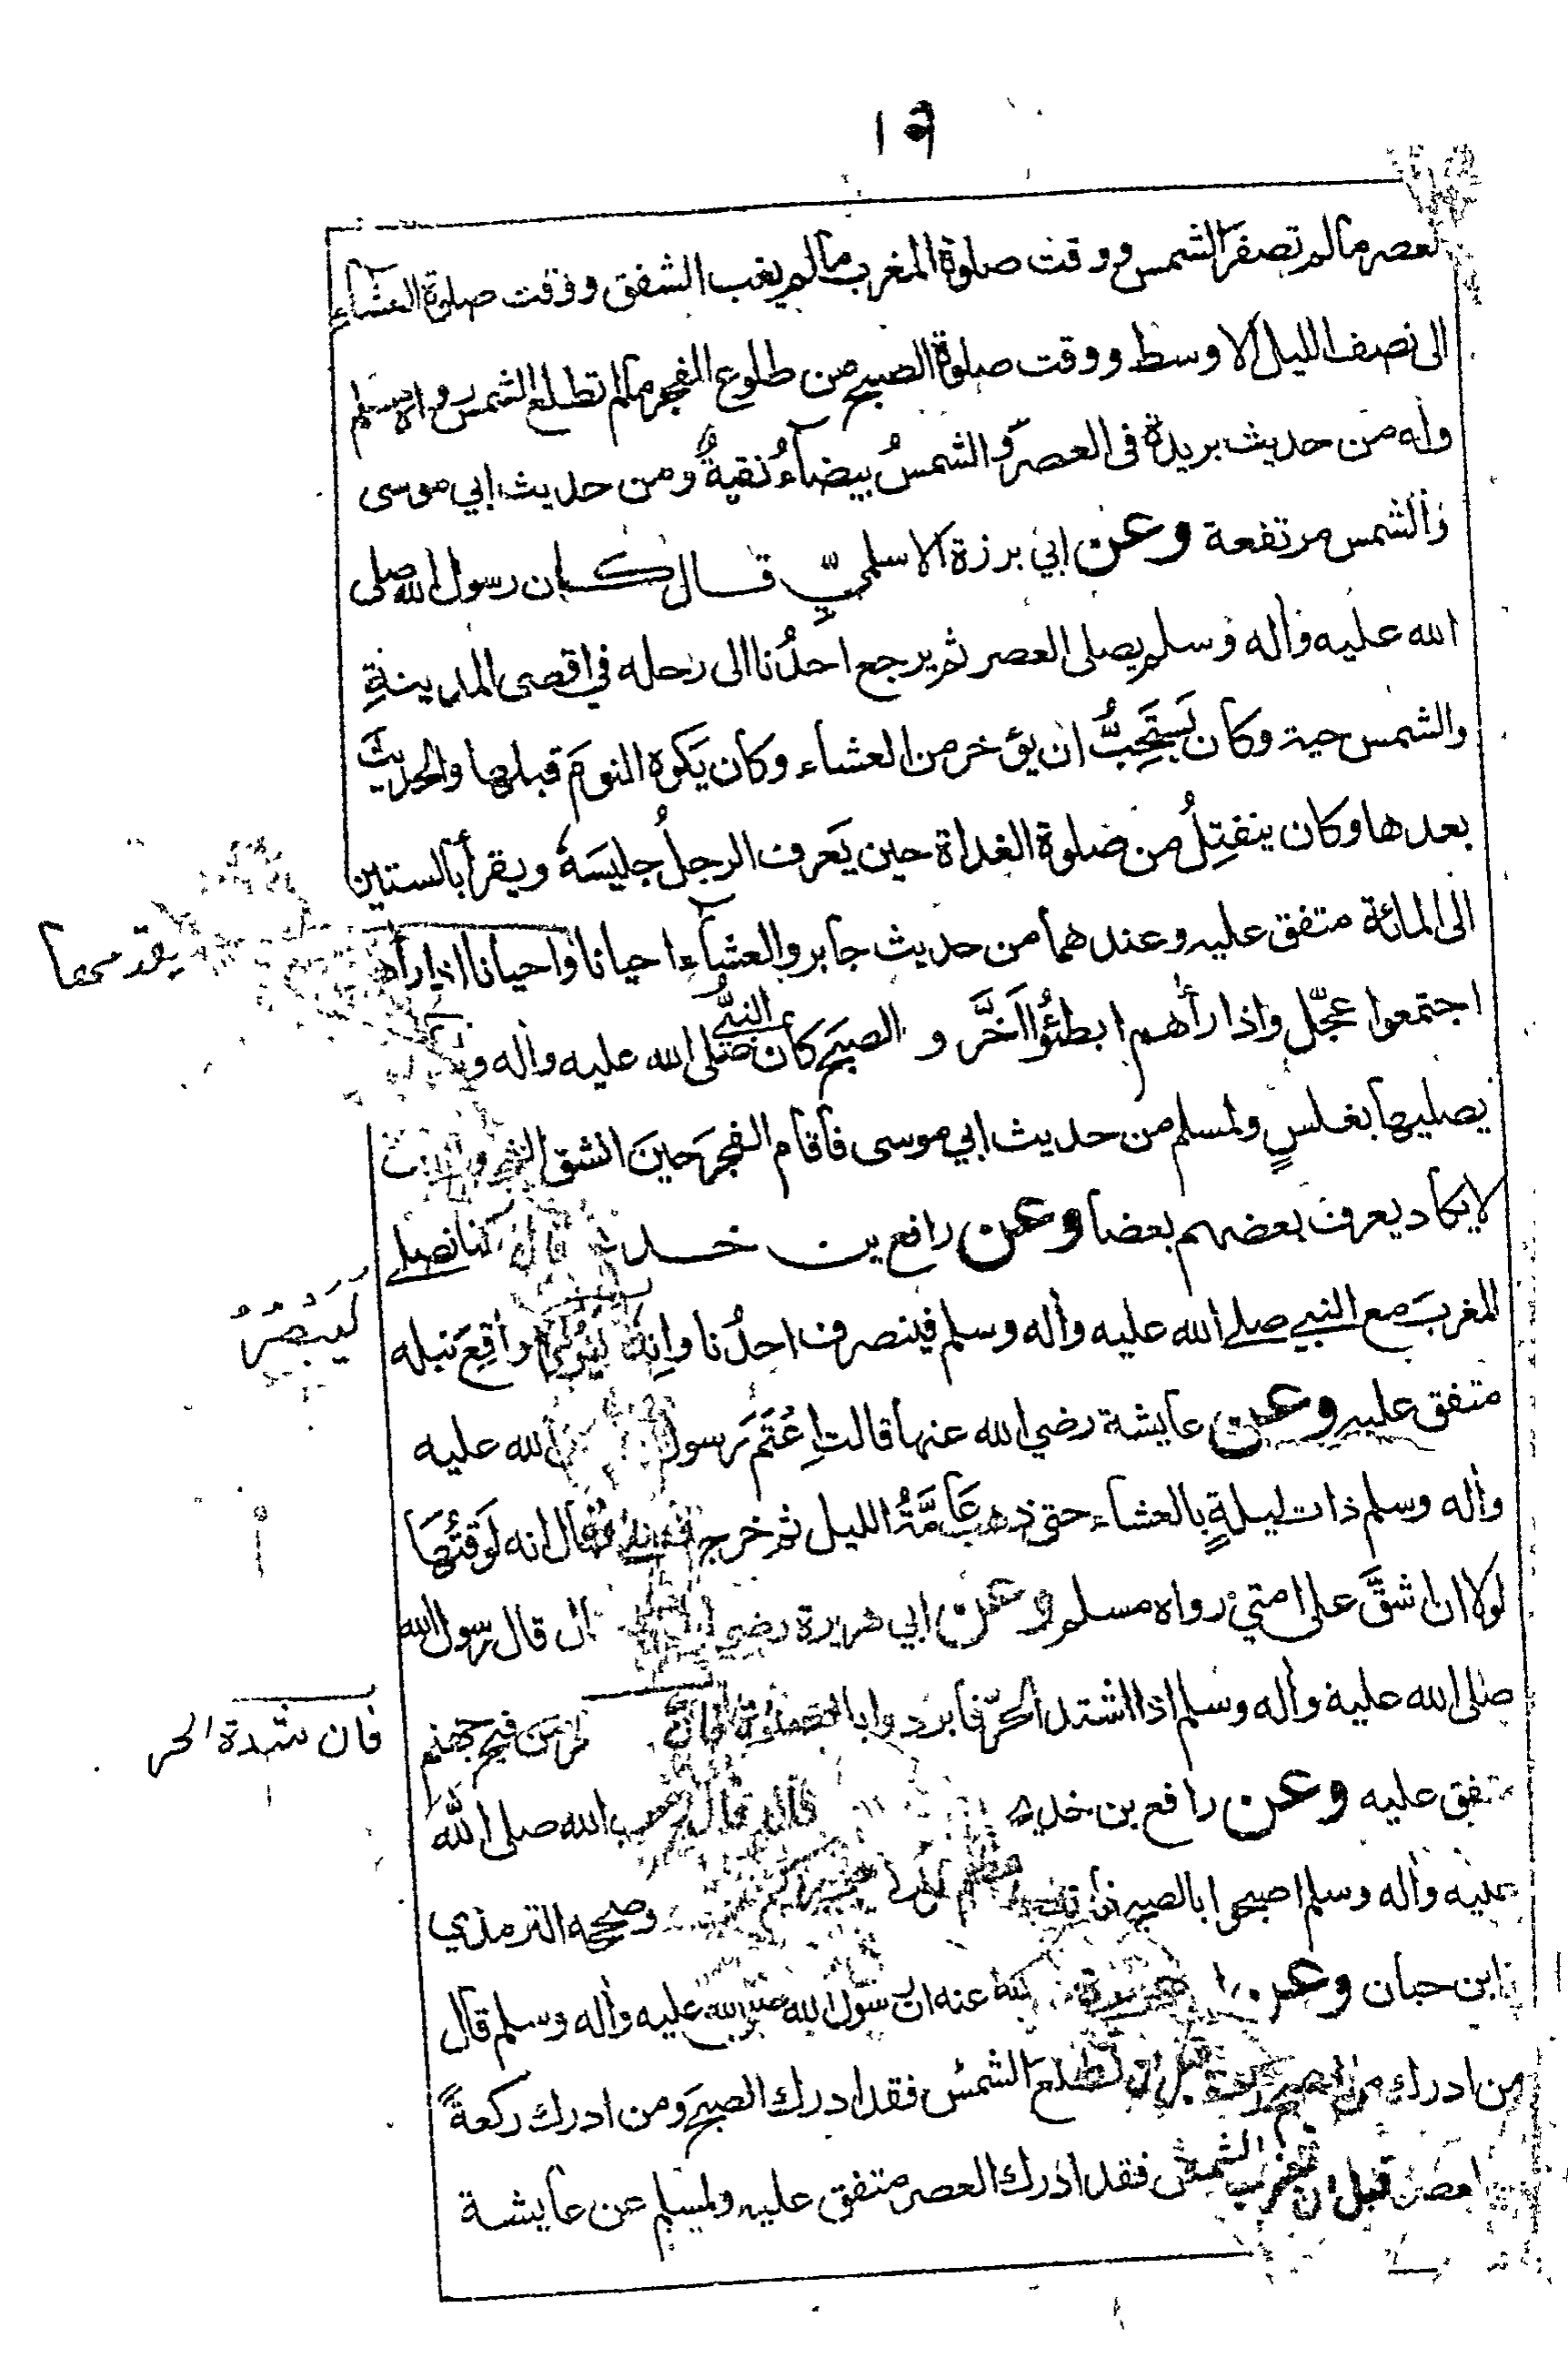 ١٩
لعصر ما لم تصفرّ الشمس ووقت صلوة المغرب ما لم يغب الشفق ووقت صلوة العشآءِ
الى نصف الليل الاوسط ووقت صلوة الصبح من طلوع الفجر ما لم تطلع الشمس رواه مسلم
وله من حديث بريدة فى العصر والشمسُ بيضآءُ نقيةٌ ومن حديث ابي موسى
والشمس مرتفعة وعن ابي برزة الاسلميّ قال كان رسول الله صلى
الله عليه وأله وسلم يصلى العصر ثم يرجع احدُنا الى رحله في اقصى المدينةِ
والشمس حية وكان يَستَحِبُّ ان يؤخر من العشاء وكان يَكره النومَ قبلها والحديثَ
بعدها وكان ينفتِلُ من صلوة الغداة حين يَعرف الرجلُ جليسَهُ ويقرأ بالستين
الى المائة متفق عليه وعندهما من حديث جابر والعشآءِ احيانا واحيانا اذا رأهم
يقدمها
اجتمعوا عجّل واذا رأهم ابطئُوا اَخَّرَ و الصبحَ كان النبيُّ صلى الله عليه وأله و
يصليها بغلسٍ ولمسلم من حديث ابي موسى فأقام الفجرَ حينَ انشق الفجر
لا يكاد يعرف بعضهم بعضا وعن رافع بن قال كنا نصلى
المغربَ مع النبي صلى الله عليه وأله وسلم فينصرف احدُنا وانِهُ مواقِعَ نبله
لَيُبْصِرُ
متفق عليه وعن عايشة رضي الله عنها قالت اِعْتَم رَسول الله عليه
وأله وسلم ذات ليلةٍ بالعشاء حتى ذهب عَامَّةُ الليل ثم خرج وقال انه لَوَقتُهَا
لولا ان اشقَّ على امتي رواه مسلم وعن ابي هريرة رضي قال قال رسول الله
صلى الله عليه وأله وسلم اذا اشتد الحَرّ فابردوا بالصلوة فانّ من فيح جهنم
فان شدة الحر
متفق عليه وعن رافع بن قال قال الله صلى الله
عليه وأله وسلم اصبحوا بالصبح وصححه الترمذي
وابن حبان وعن هريرة الله عنه ان رسول الله صلى الله عليه وأله وسلم قال
من ادرك من الصبح ركعة قبل ان تطلعَ الشمسُ فقد ادرك الصبحَ ومن ادرك ركعةً
العصر قبل ان تغرب الشمس فقد ادرك العصر متفق عليه ولمسلم عن عايشة